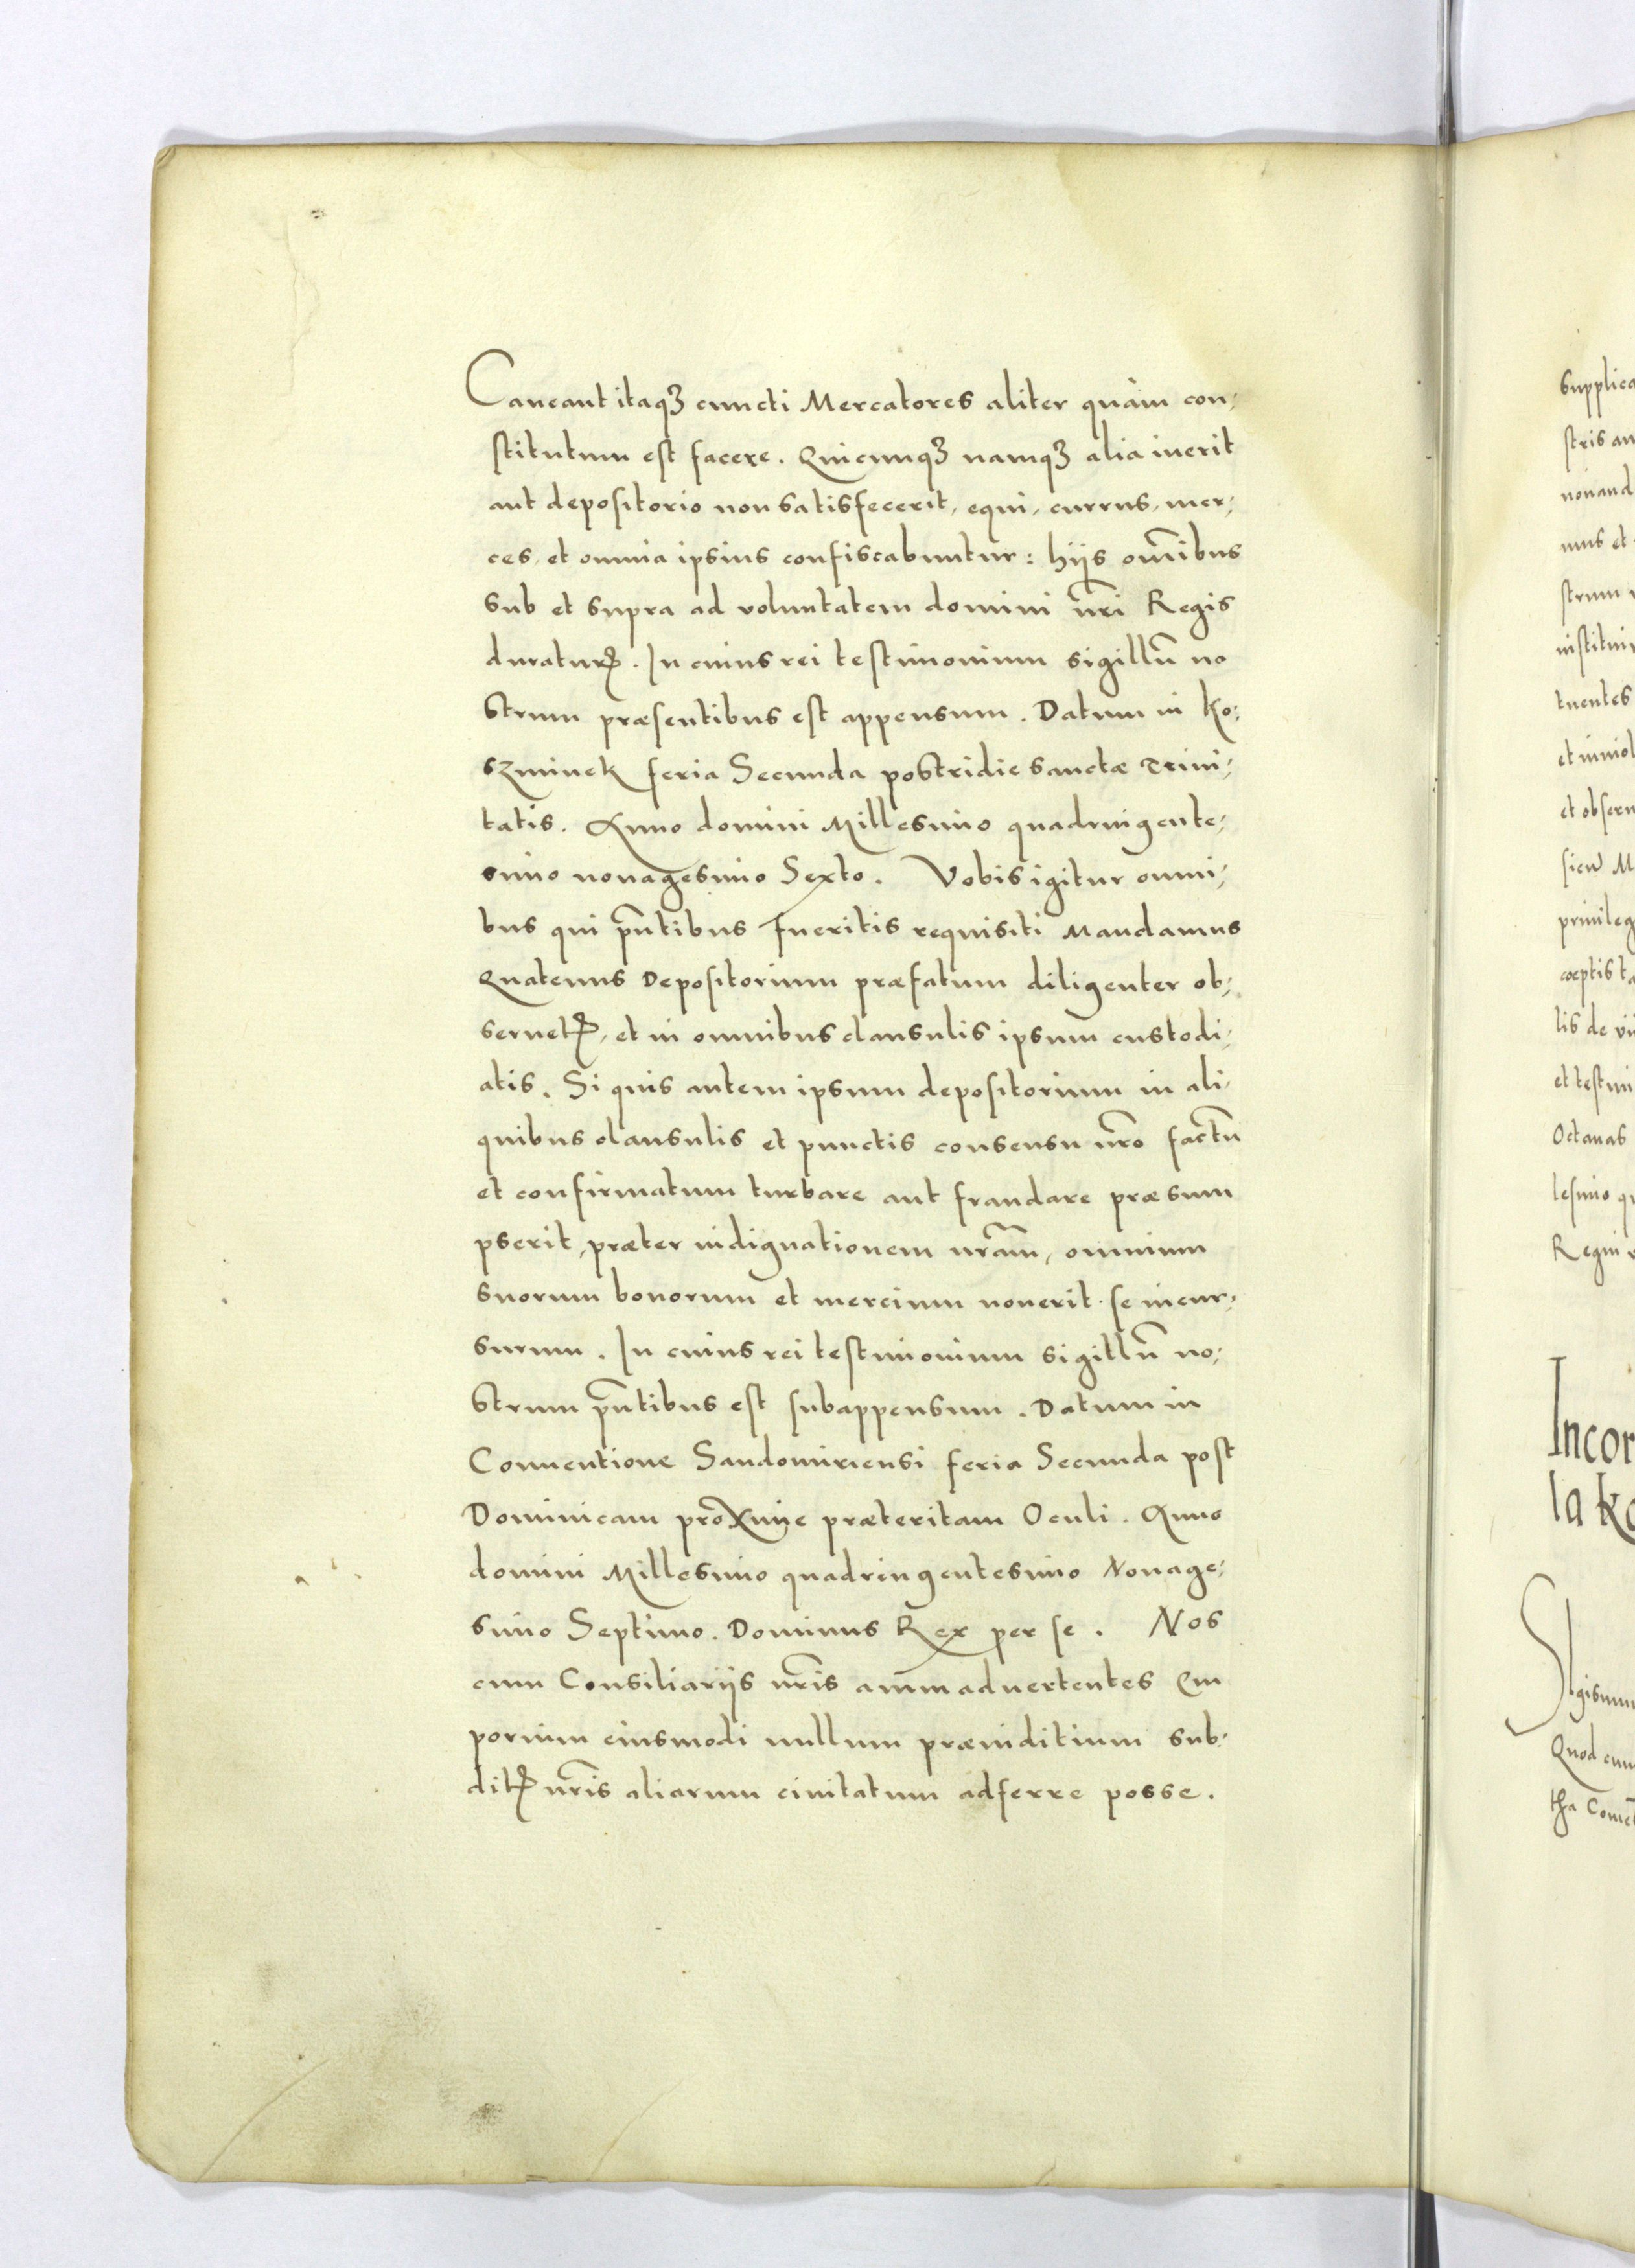 Caueant itaqꝫ cuncti Mercatores aliter quàm con⸗
stitutum est facere. Quicunqꝫ namqꝫ alia iuerit
aut depositorio non satisfecerit, equi, currus, mer⸗
ces, et omnia ipsius confiscabuntur: hijs om̃ibus
sub et supra ad voluntatem domini nr̃i Regis
duraturꝭ. In cuius rei testimonium sigillũ no
strum præsentibus est appensum. Datum in Ko⸗
szminek feria Secunda postridie sanctæ Trini⸗
tatis. Anno domini Millesimo quadringente⸗
simo nonagesimo Sexto. Vobis igitur omni⸗
bus qui pñtibus fueritis requisiti Mandamus
Quatenus Depositorium præfatum diligenter ob⸗
seruetꝭ, et in omnibus clausulis ipsum custodi⸗
atis. Si quis autem ipsum depositorium in ali⸗
quibus clausulis et punctis consensu nr̃o factũ
et confirmatum turbare aut fraudare præsum
pserit, præter indignationem nrãm, omnium
suorum bonorum et mercium nouerit se incur⸗
surum. In cuius rei testimonium sigillũ no⸗
strum pñtibus est subappensum. Datum in
Conuentione Sandomiriensi feria Secunda post
Dominicam proxime præteritam Oculi. Anno
domini Millesimo quadringentesimo Nonage⸗
simo Septimo. Dominus Rex per se. Nos
cum Consiliarijs nr̃is animaduertentes Em
porium eiusmodi nullum præiuditium sub⸗
ditꝭ nr̃is aliarum ciuitatum adferre posse.
supplica
stris an
nouand
mus et
strum
instituim
tuentes
et inuiol
et obseru
sicu M
priuileg
cœptis ta
lis de vi
et testim
Octauas
lesimo qu
Regni
Incor
la Ko
Sigismun
Quod cum
tha Comet